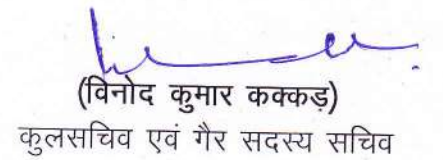 (विनोद कुमार कक्कड़)
कुलसचिव एवं गैर सदस्य सचिव